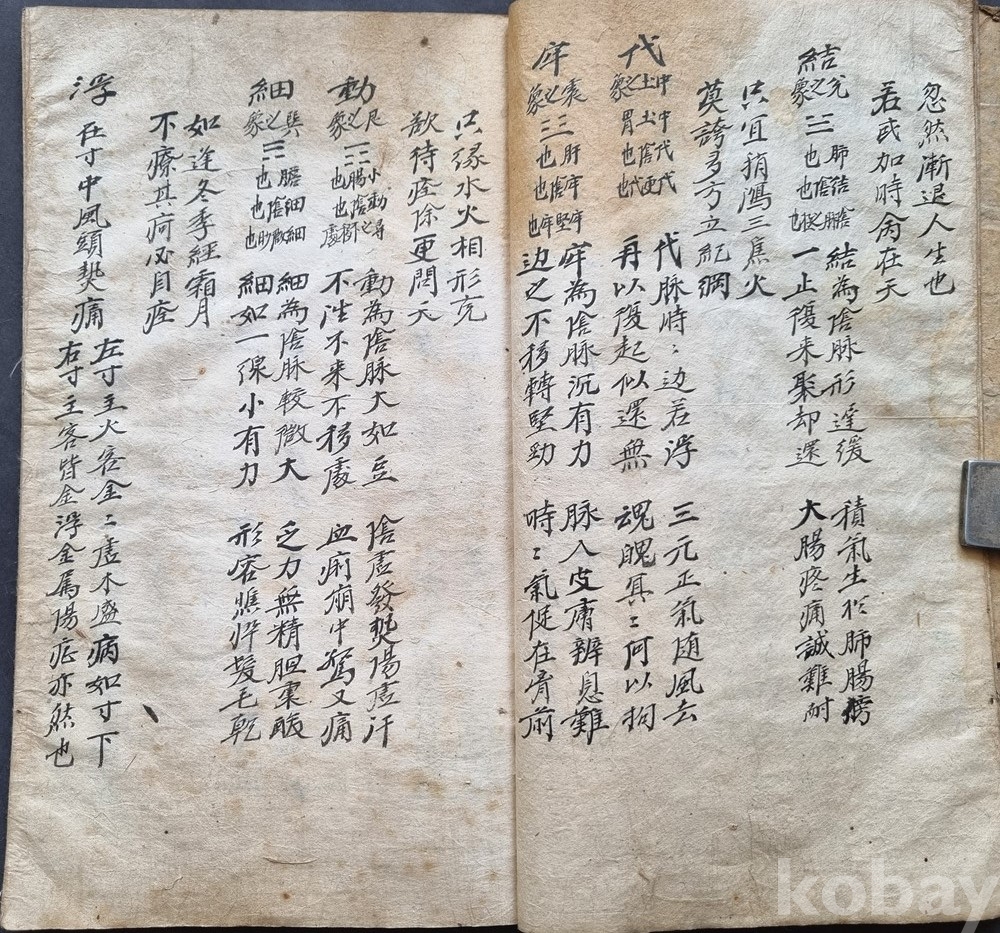 忽然漸退人生也
若或加時病在天
結 兌之象三也 肺結膽陰也 結為陰脉形遲緩 積氣生於肺腸
一止復來聚却還 大腸疼痛誠難耐
只宜稍瀉三焦火
莫誇多方立紀綱
代 中土之象 中土胃也 代陰代更代也 代脉時〻邊若浮 三元正氣随風去
再以復起似還無 魂魄冥〻何以拘
牢 之象三也 肝陰也 牢堅牢也 牢為陰脉沉有力 脉入皮膚辨息難
边之不移轉堅勁 時〻氣促在骨前
只緣水火相形克
歡待痊除更問天
動 艮之象 小腸也 動陰也 動為陰脉大如豆 陰虛發熱陽虛汗
不往不來不移處 血痢崩中駕又痛
細 巽之象三也 膽陰也 細細微也 細為陰脉較微大 乏力無精胆裏酸
細如一線小有力 形容憔悴髮毛乾
如逢冬季經霜月
不療其疴必自痊
浮 在寸中風頭熱痛 左寸主火客金〻虛木盛病如寸下
右寸主客皆金浮金属陽症亦然也
kobay